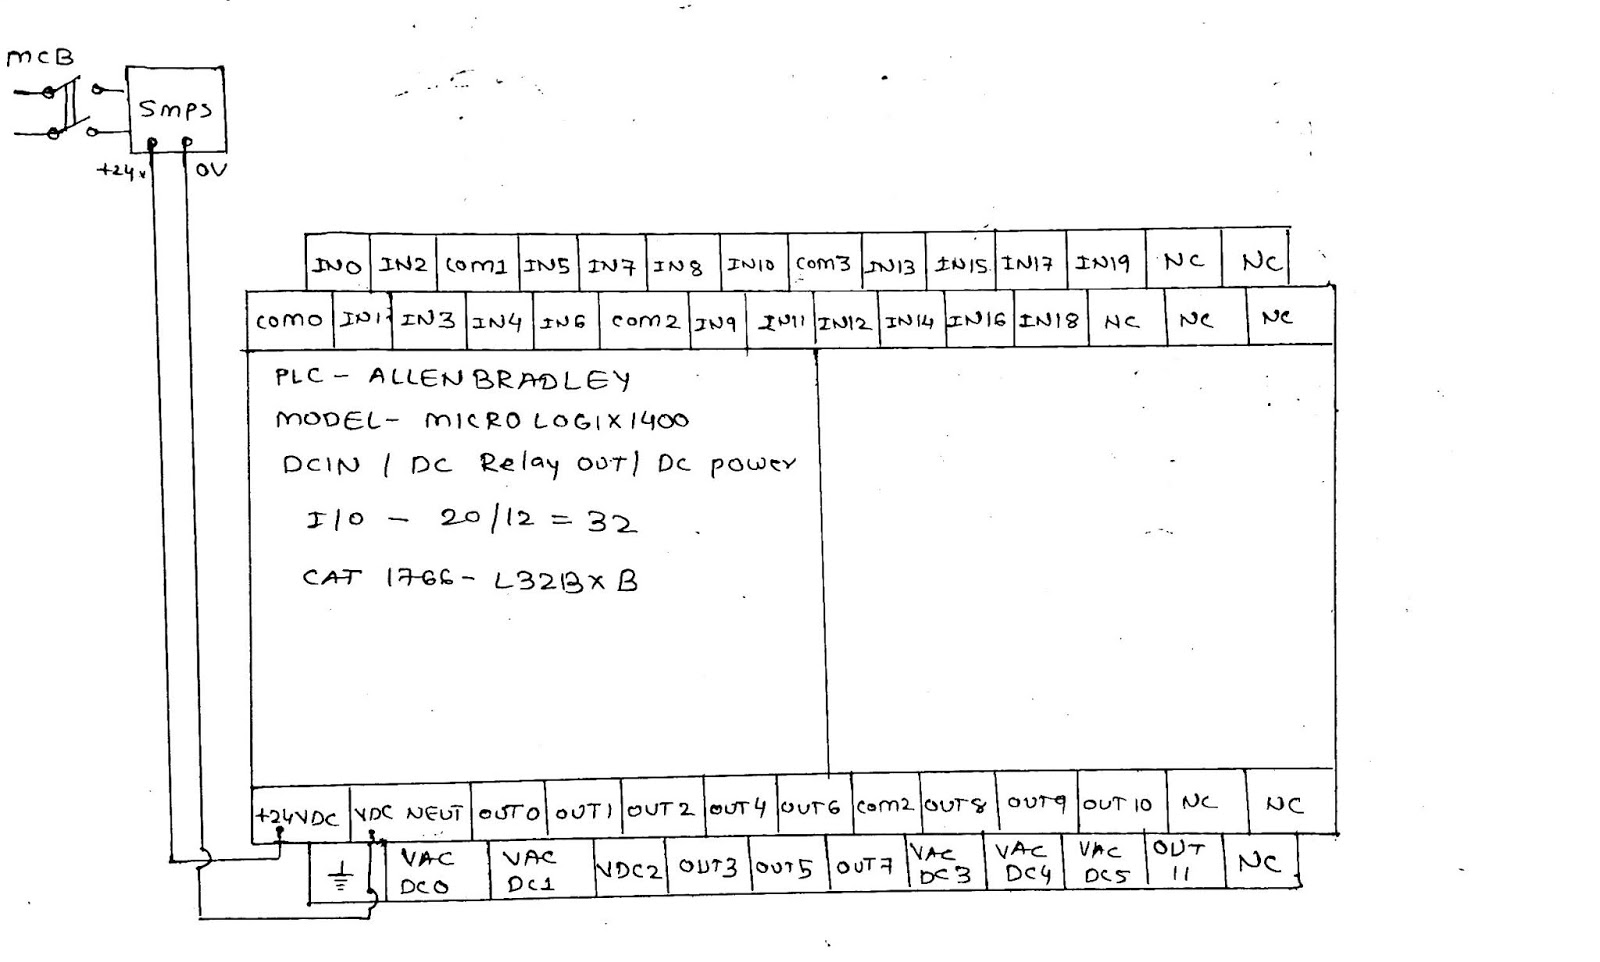 MCB
SMPS
+24v 0V
IN0 IN2 COM1 IN5 IN7 IN8 IN10 COM3 IN13 IN15 IN17 IN19 NC NC
COM0 IN1 IN3 IN4 IN6 COM2 IN9 IN11 IN12 IN14 IN16 IN18 NC NC NC
PLC - ALLEN BRADLEY
MODEL - MICRO LOGIX1400
DCIN / DC Relay OUT / DC power
I/O - 20/12 = 32
CAT 1766 - L32BXB
+24VDC VDC NEUT OUT0 OUT1 OUT2 OUT4 OUT6 COM2 OUT8 OUT9 OUT10 NC NC
VAC DC0 VAC DC1 VDC2 OUT3 OUT5 OUT7 VAC DC3 VAC DC4 VAC DC5 OUT 11 NC